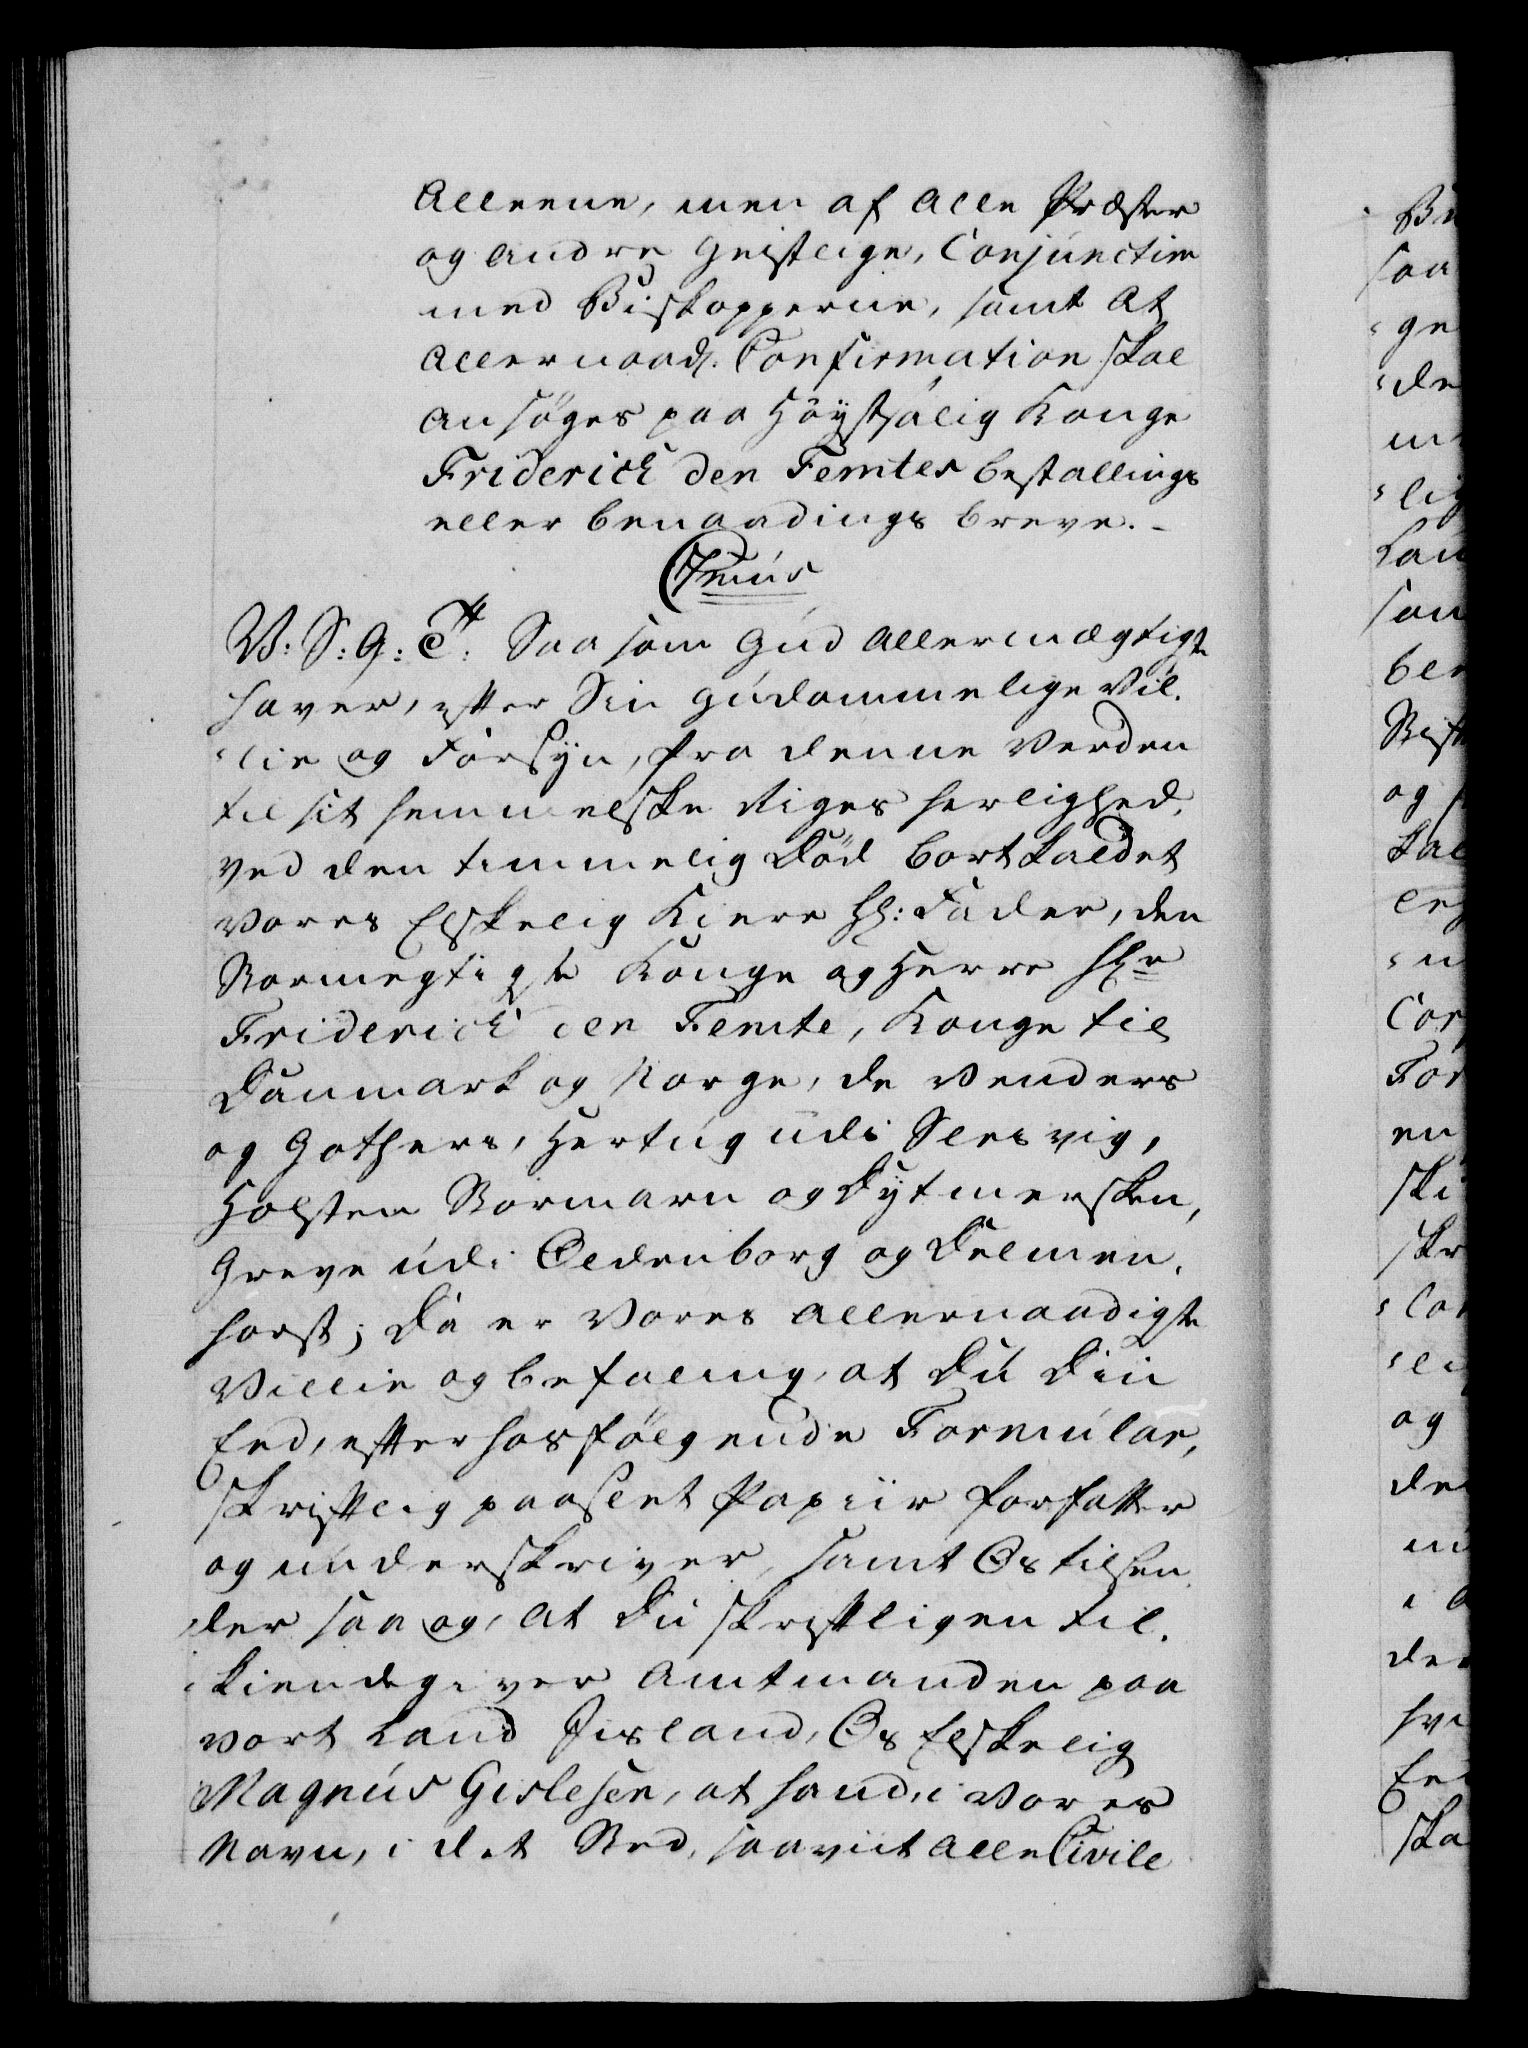 Alleene, men af alle Præster
og andre Geistlige, Conjunctim
med Biskopperne, samt at
allernaad. Confirmation skal
ansøges paa Høystsalig Konge
Friderich den Femtes bestallings
eller benaadings breve. -
C7mus
V: S: G: T: Saa som Gud allermægtigste
haver, efter Sin gudommelige Vil-
lie og Forsyn, fra denne Verden
til sit hemmelske Riges herlighed,
ved den timmelig Død bortkaldet
Vores Elskelig Kiere Hr: Fader, den
Stormegtigste Konge og Herre Hr
Friderich den Femte, Konge til
Danmark og Norge, de Venders
og Gothers, Hertug udi Slesvig,
Holsten Stormarn og Dytmersken,
Greve udi Oldenborg og Delmen-
horst; Da er Vores allernaadigste
Villie og befaling, at Du Din
Eed, efter hosfølgende Formular,
skriftlig paa slet Papiir forfatter
og underskriver, samt Os tilsen-
der saa og, at Du skriftligen til-
kiendegiver Amtmanden paa
vort Land Iisland, Os Elskelig
Magnus Gislesen, at hand, i Vores
Navn, i det Sted, saaviit alle Civile
Be
saa
ge
de
m
lig
Lan
son
ben
Stift
og
kal
leg
n
Cor
For
en
ski
skr
Con
li
og
de
m
i
den
hvi
Ee
ska